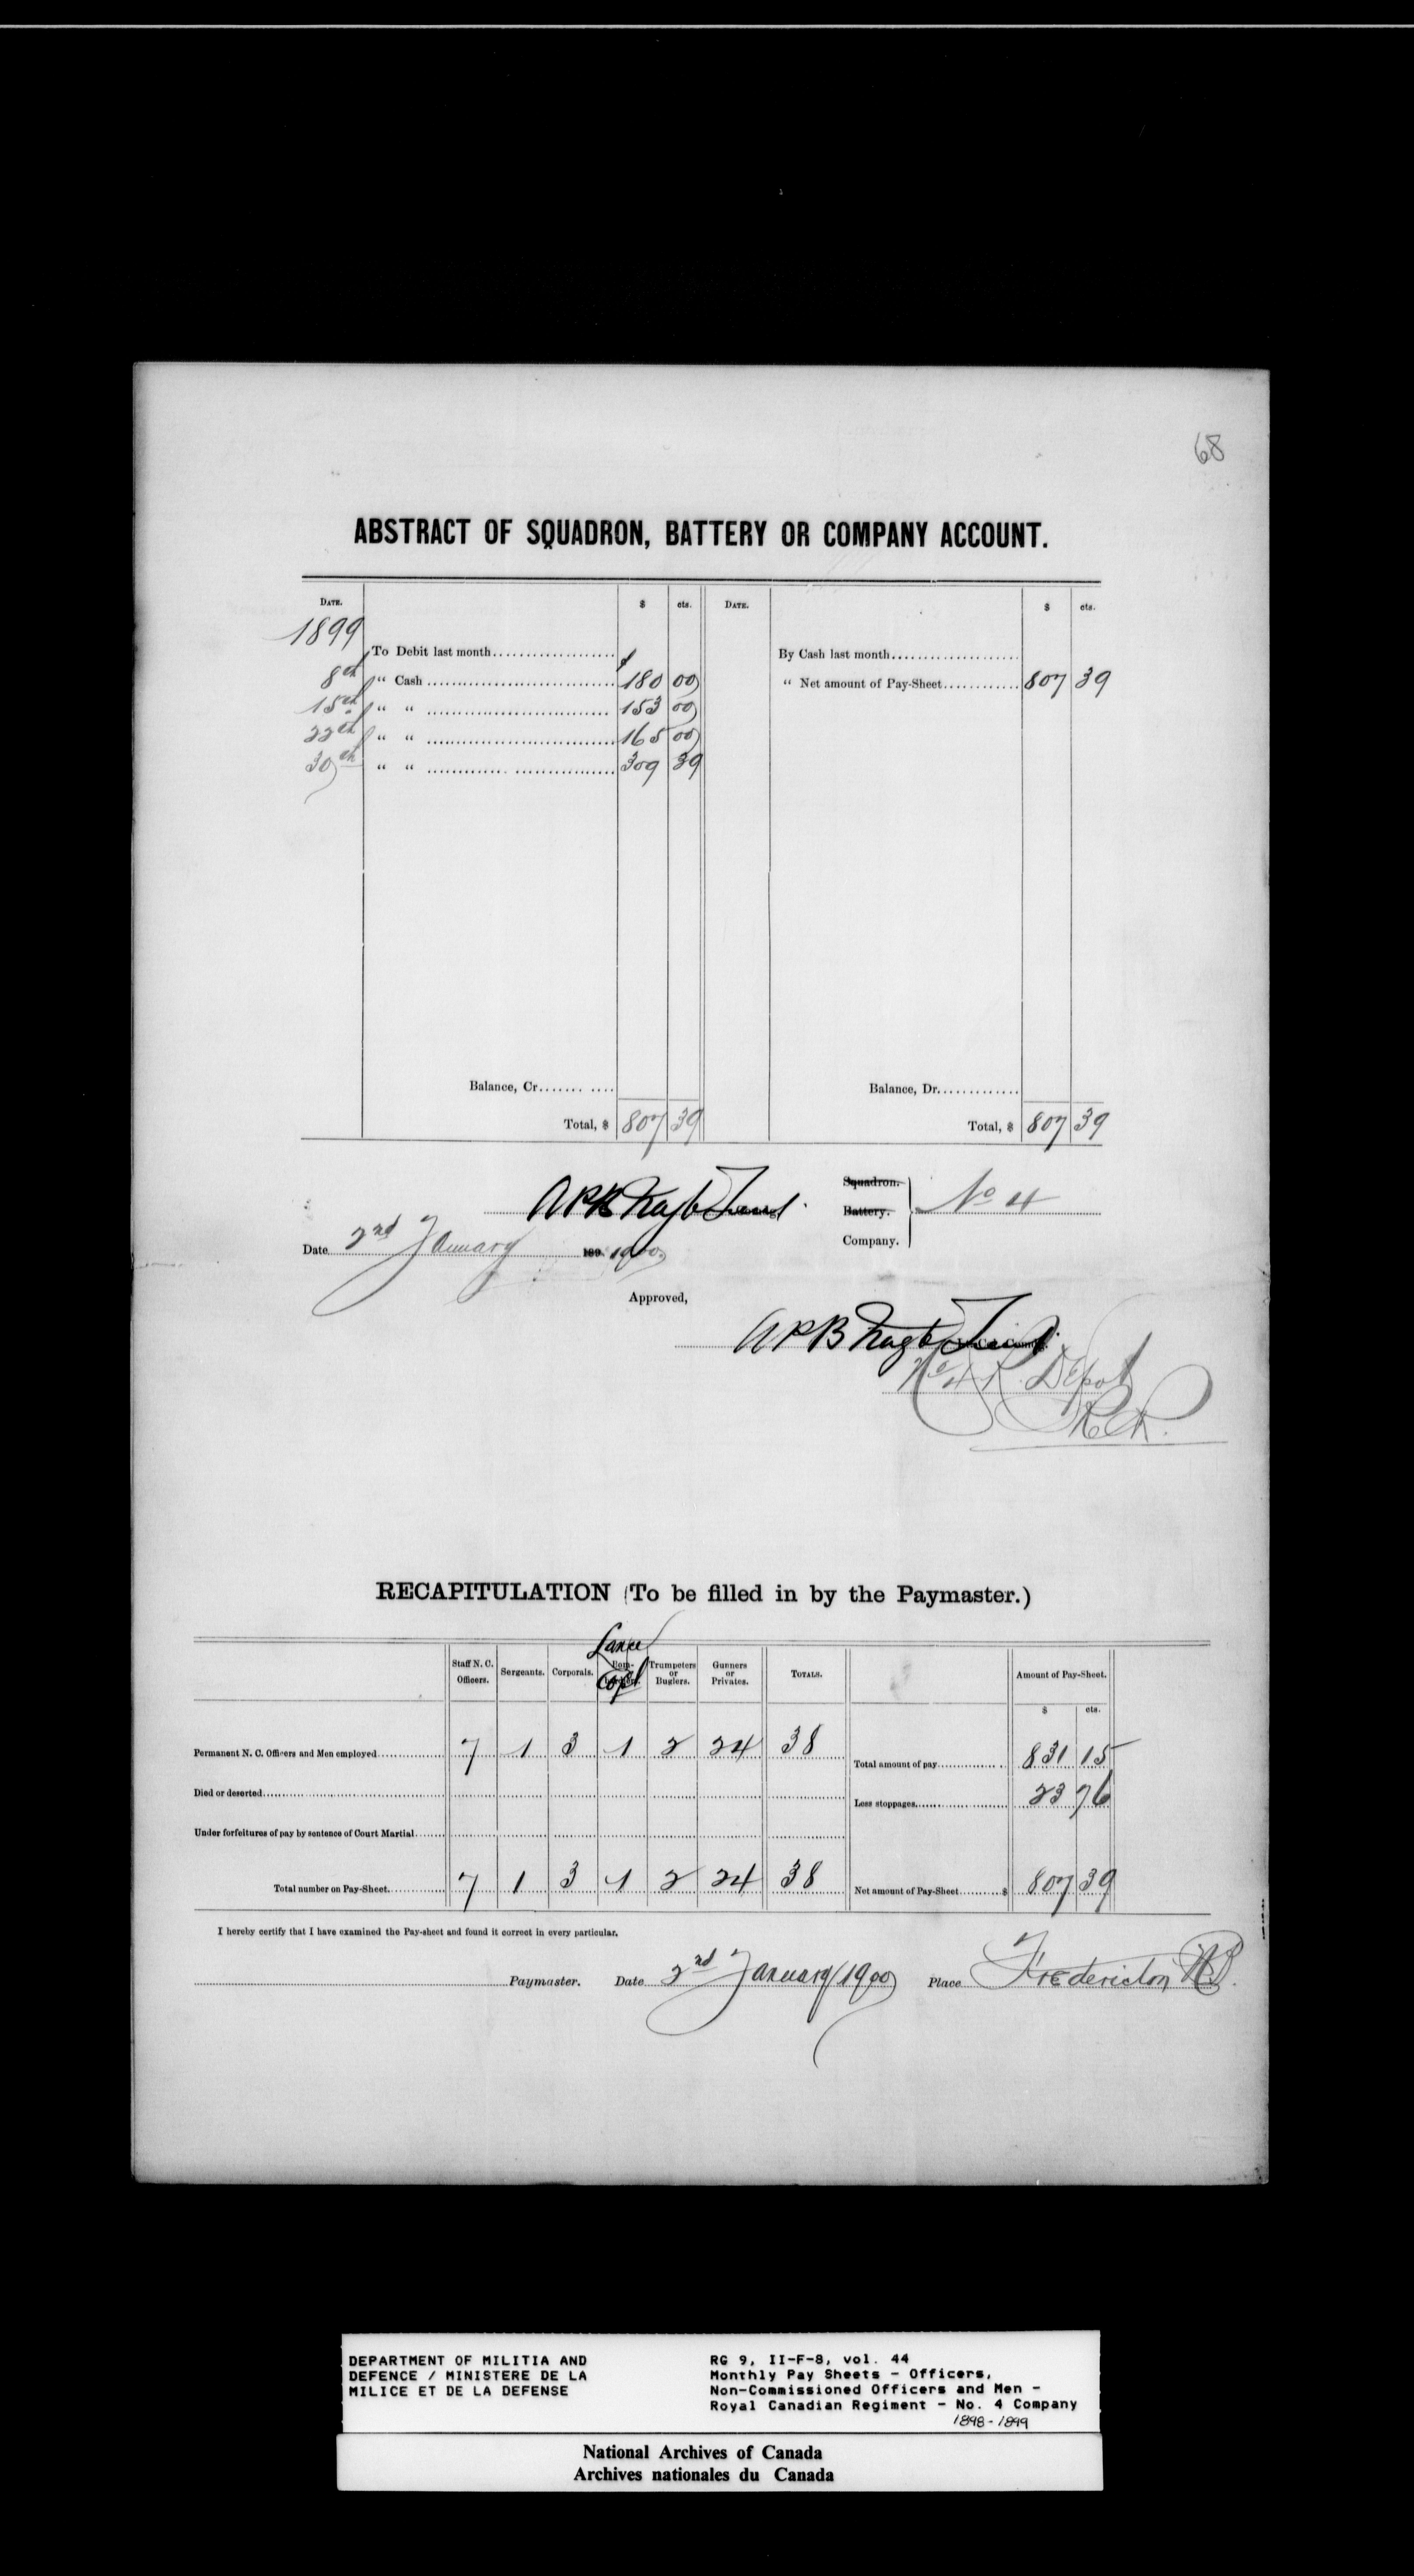 68
ABSTRACT OF SQUADRON, BATTERY OR COMPANY ACCOUNT.
DATE. $ cts. DATE. $ cts.
1899
To Debit last month By Cash last month
8th " Cash 180 00 " Net amount of Pay-Sheet 807 39
15th " " 153 00
22th " " 165 00
30th " " 309 39
Balance, Cr. Balance, Dr.
Total, $ 807 39 Total, $ 807 39
Squadron.
Battery. No 4
Company.
Date 2nd January 189 1900
Approved,
No 4 R. Depot
R.C.R.
RECAPITULATION (To be filled in by the Paymaster.)
Lance
Staff N. C. Officers. Sergeants. Corporals. Copl Trumpeters or Buglers. Gunners or Privates. TOTALS. Amount of Pay-Sheet.
$ cts.
Permanent N. C. Officers and Men employed 7 1 3 1 2 24 38 Total amount of pay 831 15
Died or deserted Less stoppages 23 76
Under forfeitures of pay by sentence of Court Martial
Total number on Pay-Sheet 7 1 3 1 2 24 38 Net amount of Pay-Sheet $ 807 39
I hereby certify that I have examined the Pay-sheet and found it correct in every particular.
Paymaster. Date 2nd January 1900 Place Fredericton NB.
DEPARTMENT OF MILITIA AND
DEFENCE / MINISTERE DE LA
MILICE ET DE LA DEFENSE
RG 9, II-F-8, vol. 44
Monthly Pay Sheets - Officers,
Non-Commissioned Officers and Men -
Royal Canadian Regiment - No. 4 Company
1898-1899
National Archives of Canada
Archives nationales du Canada